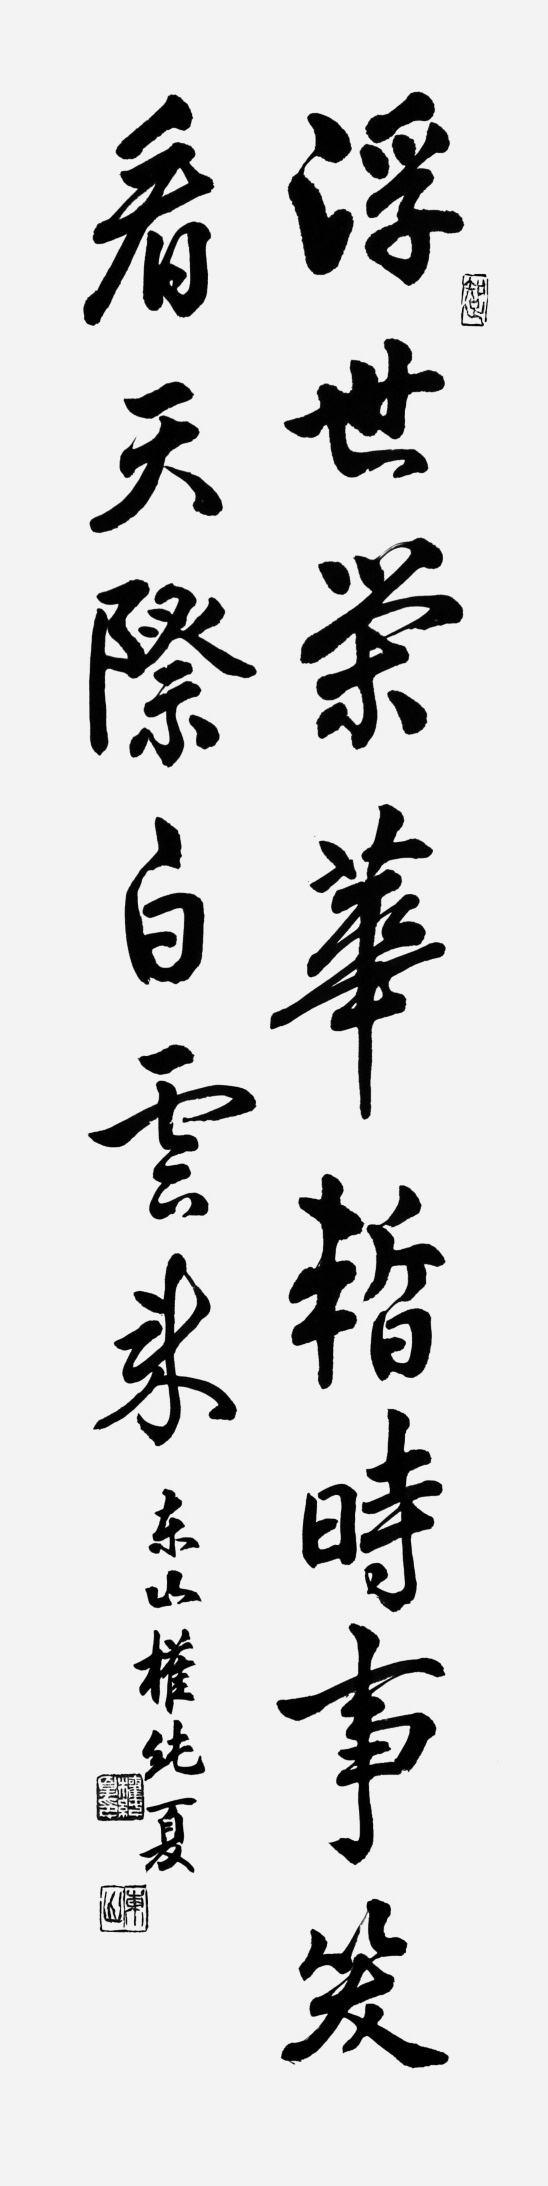 浮世榮華暫時事笑
看天際白雲来
东山權純夏
權純夏印
東山